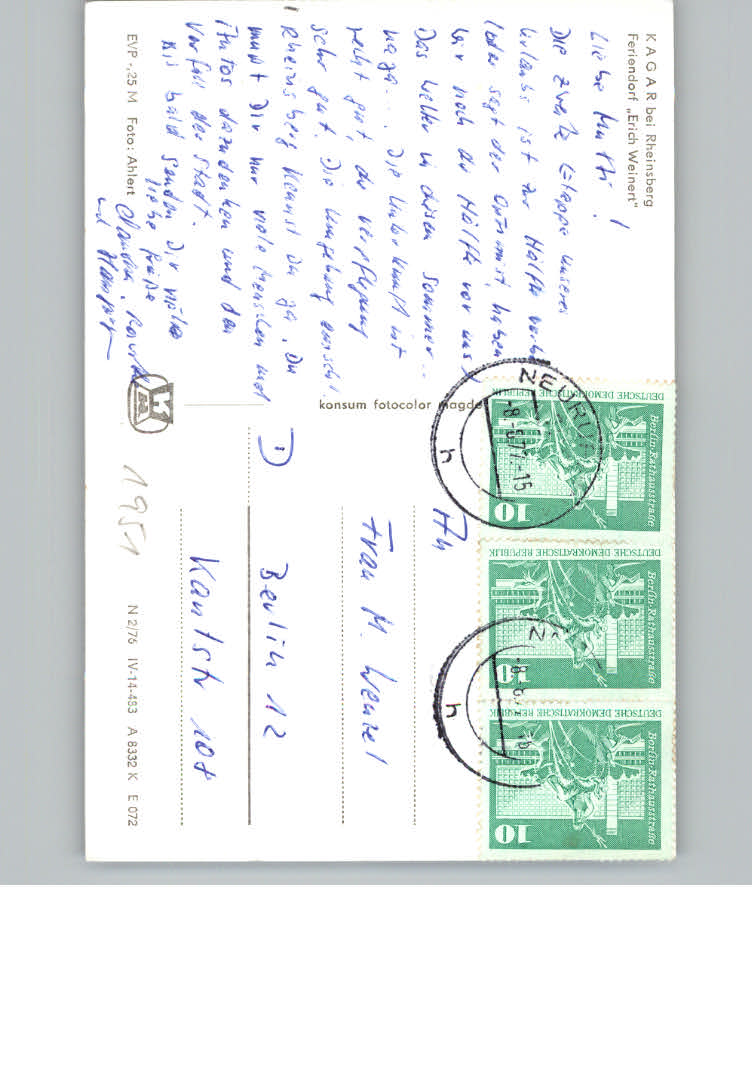 KAGAR bei Rheinsberg
Feriendorf „Erich Weinert"
Liebe Mutti!
Die zweite Etappe unseres
Urlaubs ist zur Hälfte vorbei
(oder sagt der Optimist, haben
wir noch die Hälfte vor uns)
Das Wetter in diesem Sommer..
naja... Die Unterkunft ist
recht gut, die Verpflegung
sehr gut. Die Umgebung einschl.
Rheinsberg kennst Du ja. Du
mußt Dir nur viele Menschen und
Autos dazudenken und den
Verfall der Stadt.
Bis bald senden Dir viele
liebe Grüße
Claudia,
und
EVP -,25 M Foto: Ahlert
konsum fotocolor magde
1)
1951
An
Frau M. Wenzel
Berlin 12
Kantstr 108
N 2/76 IV-14-483 A 8332 K E 072
DEUTSCHE DEMOKRATISCHE REPUBLIK
Berlin-Rathausstraße
10
DEUTSCHE DEMOKRATISCHE REPUBLIK
Berlin-Rathausstraße
10
DEUTSCHE DEMOKRATISCHE REPUBLIK
Berlin-Rathausstraße
10
NEURU
-8.-6.77.-15
h
N
-8.-6.
h